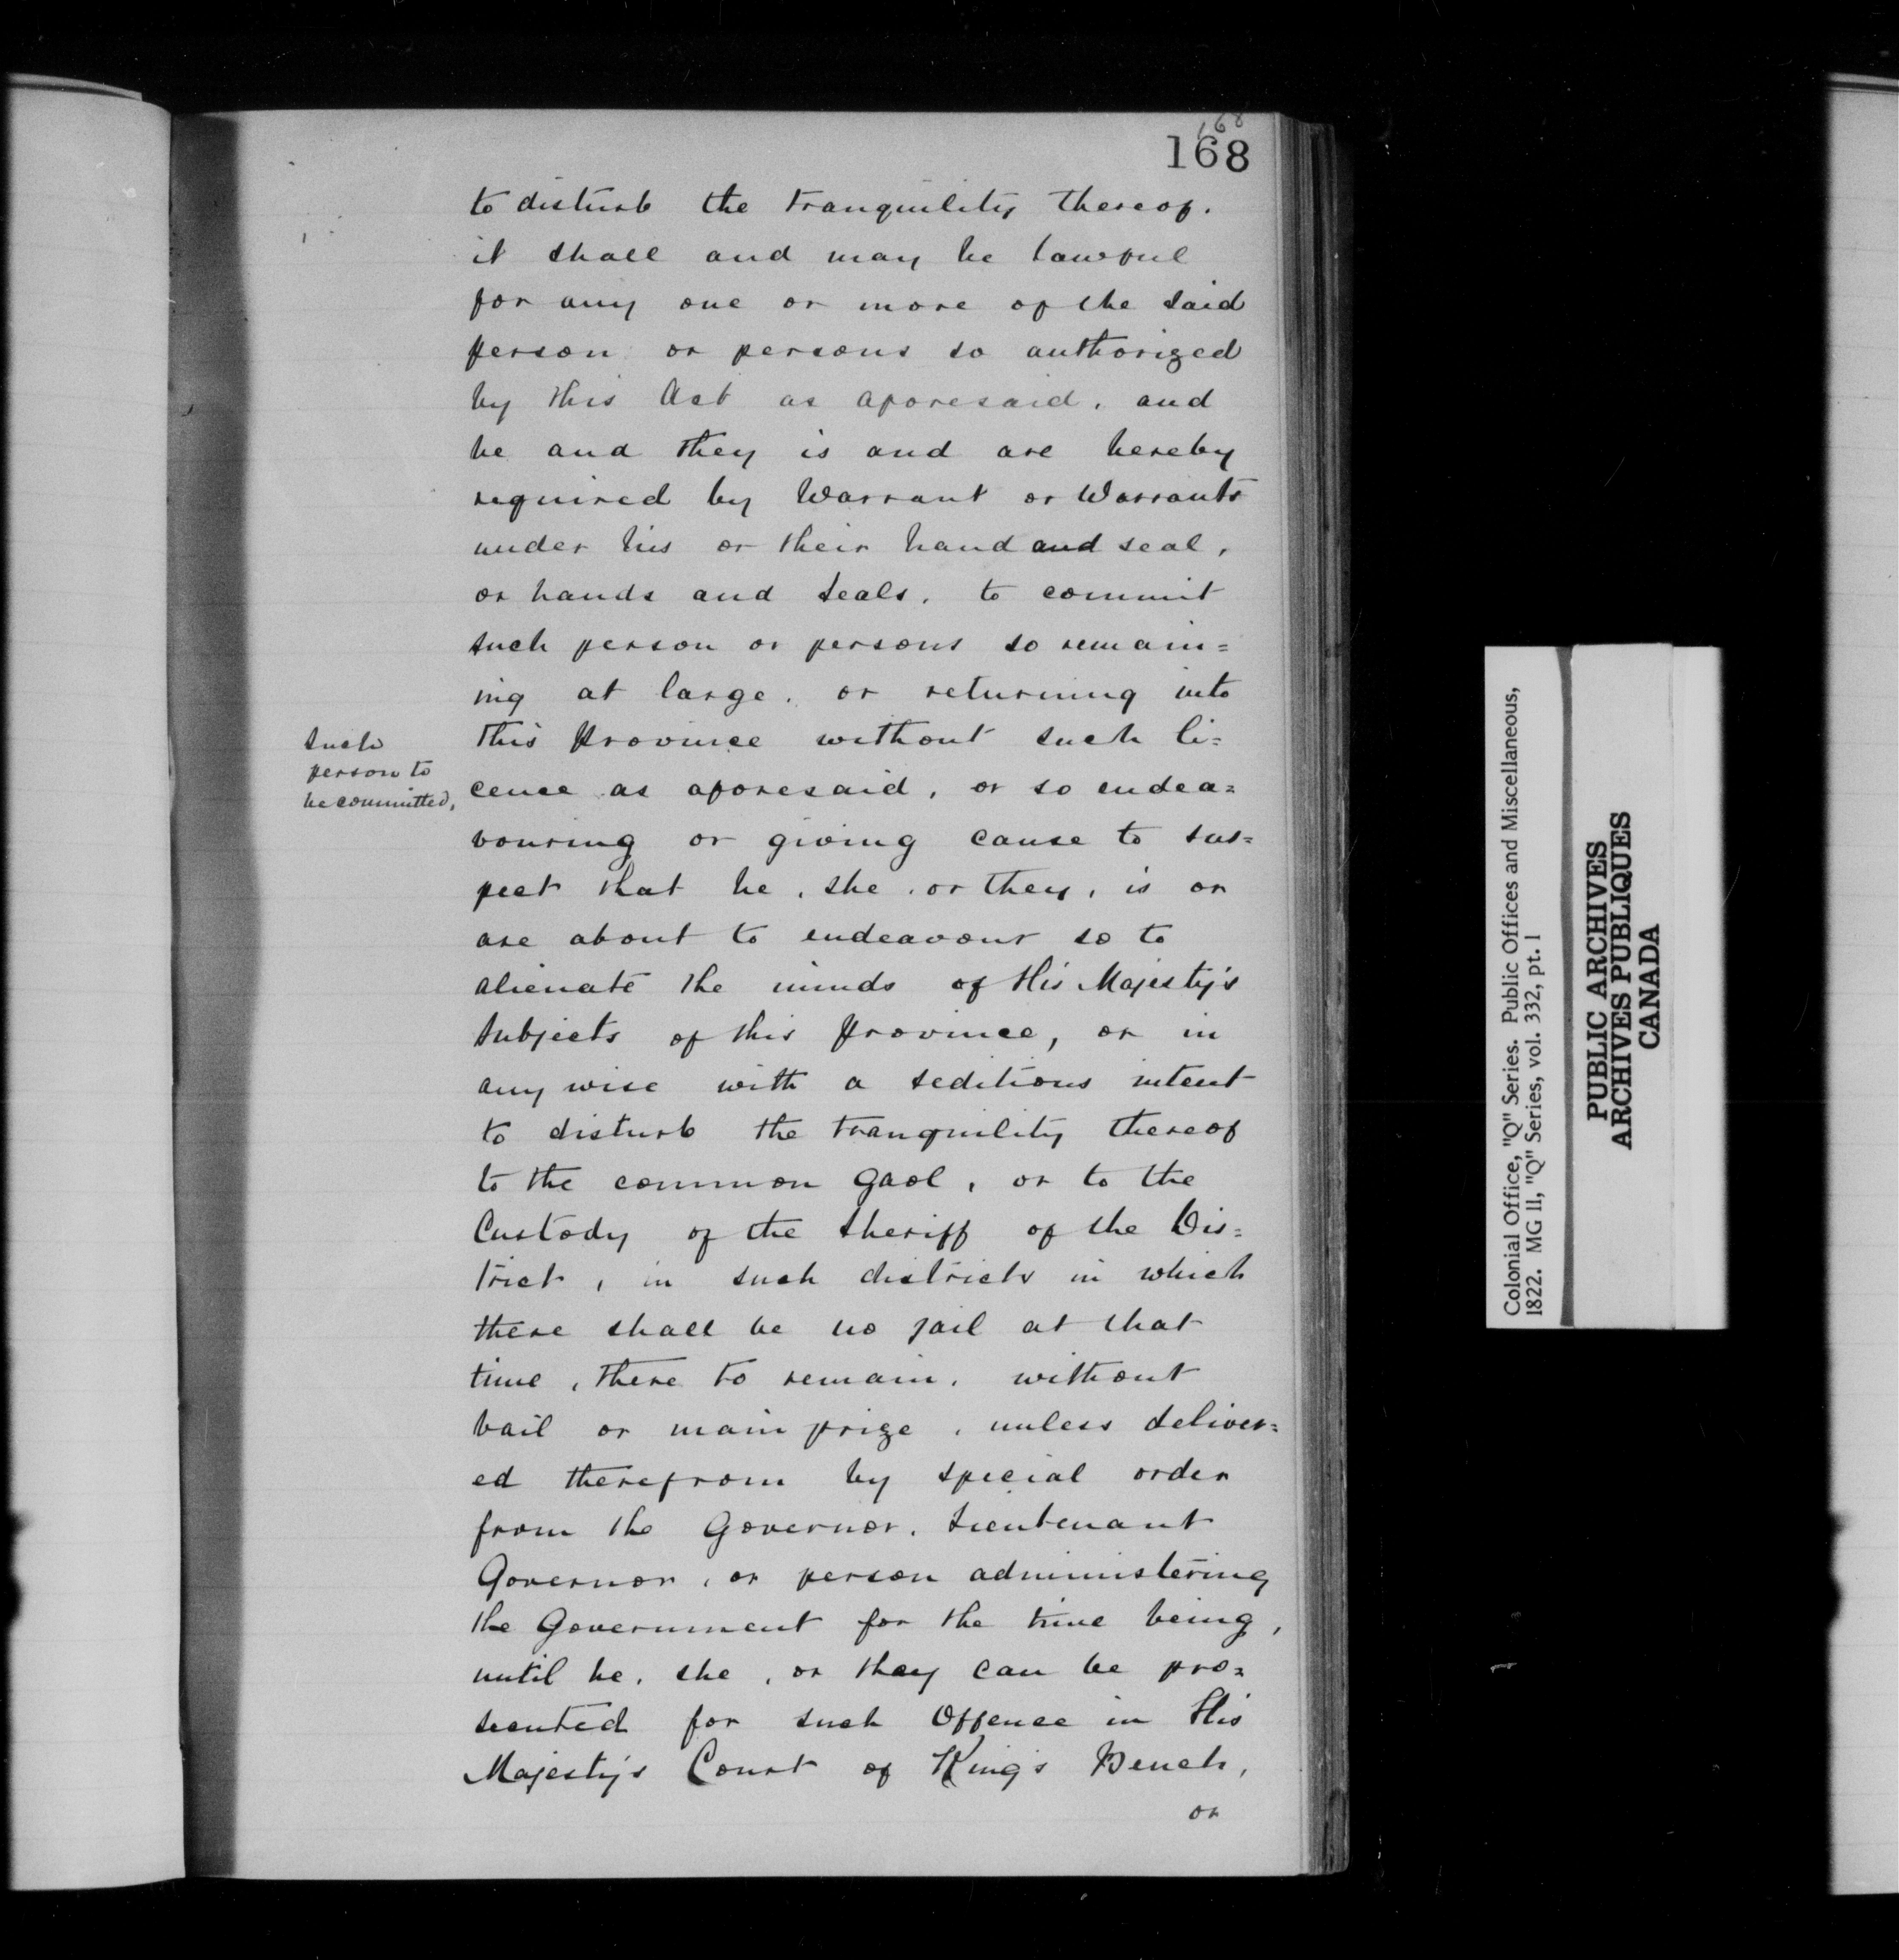 168
168
to disturb the tranquility thereof.
it shall and may be lawful
for any one or more of the said
person or persons so authorized
by this Act as aforesaid, and
he and they is and are hereby
required by Warrant or Warrants
under his or their hand and seal,
or hands and seals, to commit
such person or persons so remain=
ing at large, or returning into
this Province without such li=
cence as aforesaid, or so endea=
vouring or giving cause to sus=
pect that he, she, or they, is or
are about to endeavour so to
alienate the minds of His Majesty's
Subjects of this Province, or in
any wise with a seditious intent
to disturb the tranquility thereof
to the common gaol, or to the
Custody of the Sheriff of the Dis=
trict, in such districts in which
there shall be no jail at that
time, there to remain, without
bail or main prize, unless deliver=
ed therefrom by special order
from the Governor, Lieutenant
Governor, or person administering
the Government for the time being,
until he, she, or they can be pro=
secuted for such Offence in His
Majesty's Court of King's Bench,
or
Such
person to
be committed,
Colonial Office, "Q" Series. Public Offices and Miscellaneous,
1822. MG 11, "Q" Series, vol. 332, pt. 1
PUBLIC ARCHIVES
ARCHIVES PUBLIQUES
CANADA